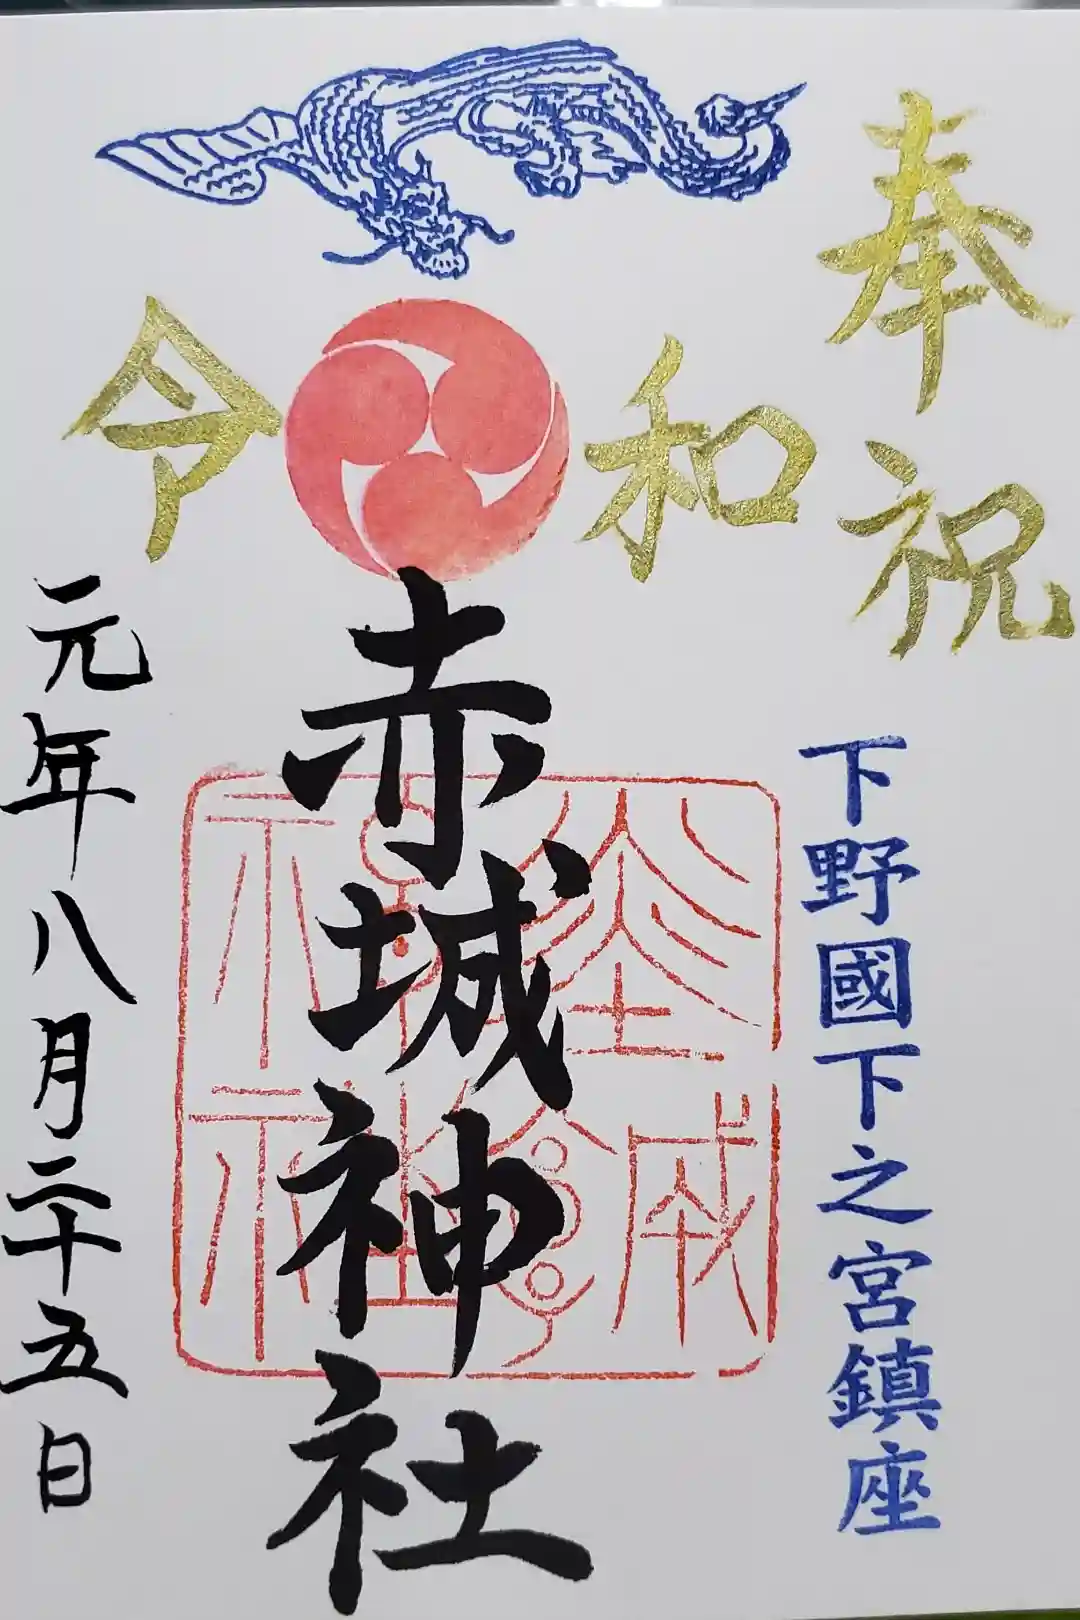 奉祝
下野國下之宮鎮座
令和
赤城神社
元年八月二十五日